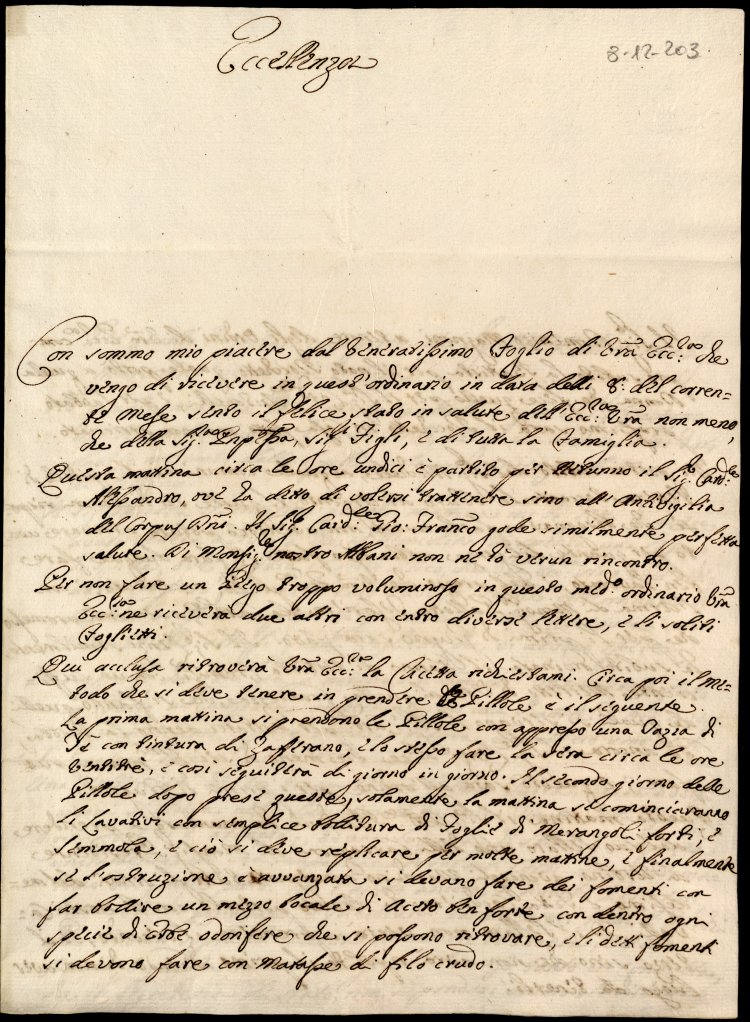 Eccellenza
8-12-203
Con sommo mio piacere dal Veneratissimo Foglio di Vrã Ecc:za che
vengo di ricevere in quest'ordinario in data delli 8. del corren-
te Mese sento il felice stato in salute dell'Ecc:za Vrã non meno,
che della Sig:ra Pnp̃essa, Sig:i Figli, e di tutta la Famiglia.
Questa mattina circa le ore undici è partito per Nettunno il Sig:r Card:le
Alessandro, ove hà detto di volersi trattenere sino all'Antivigilia
del Corpus Dñi. Il Sig:r Card:le Gio: Franco gode similmente perfetta
salute. Di Monsig:re nostro Albani non ne hò verun rincontro.
Per non fare un Piego troppo voluminoso in questo med:o ordinario Vrã
Ecc:za ne riceverà due altri con entro diverse lettere, e li soliti
Foglietti.
Qui acclusa ritroverà Vrã Ecc:za la Ricetta richiestami. Circa poi il Me-
todo che si deve tenere in prendere le Pillole è il seguente.
La prima mattina si prendono le Pillole con appresso una Tazia di
Tè con tintura di Zaffrano, e lo stesso fare la sera circa le ore
ventitrè, e così seguiterà di giorno in giorno. Il secondo giorno delle
Pillole dopo prese queste, solamente la mattina si cominciaranno
li Lavativi con semplice bollitura di Foglie di Merangoli forti, e
semmola, e ciò si deve replicare per molte mattine, e finalmente
se l'ostruzione è avvanzata si devano fare dei fomenti con
far bollire un mezzo bocale di Aceto ben forte con dentro ogni
specie di Erbe odorifere che si possono ritrovare, e li detti fomenti
si devono fare con Matasse di filo crudo.